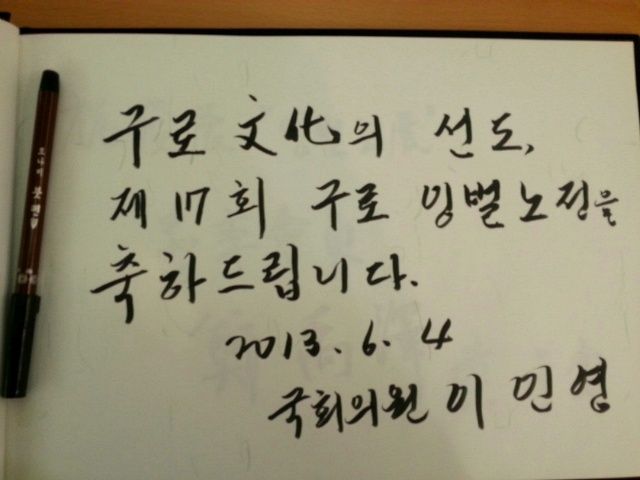 구로 文化의 선도,
제 17회 구로 잉벌노전을
축하드립니다.
2013. 6. 4
국회의원 이인영
모나미 붓펜